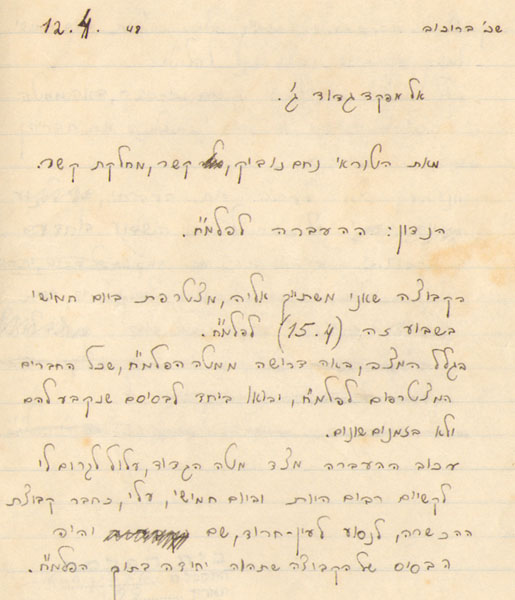 שכ' ברוכוב 12.4.48
אל מפקד גדוד ג'.
מאת הטוראי נחם נוביק, קשר, מחלקת קשר.
הנדון: ההעברה לפלמ"ח.
הקבוצה שאני משתייך אליה, מצטרפת ביום חמישי
בשבוע זה (15.4) לפלמ"ח.
בגלל המצב, באה דרישה ממטה הפלמ"ח, שכל החברים
המצטרפים לפלמ"ח, יבואו ביחד לבסיס שנקבע להם
ולא בזמנים שונים.
עכוב ההעברה מצד מטה הגדוד, עלול לגרום לי
לקשיים רבים היות וביום חמישי, עלי, כחבר קבוצת
ההכשרה, לנסוע לעין-חרוד, שם יהיה
הבסיס של הקבוצה שתהוה יחידה בתוך הפלמ"ח.